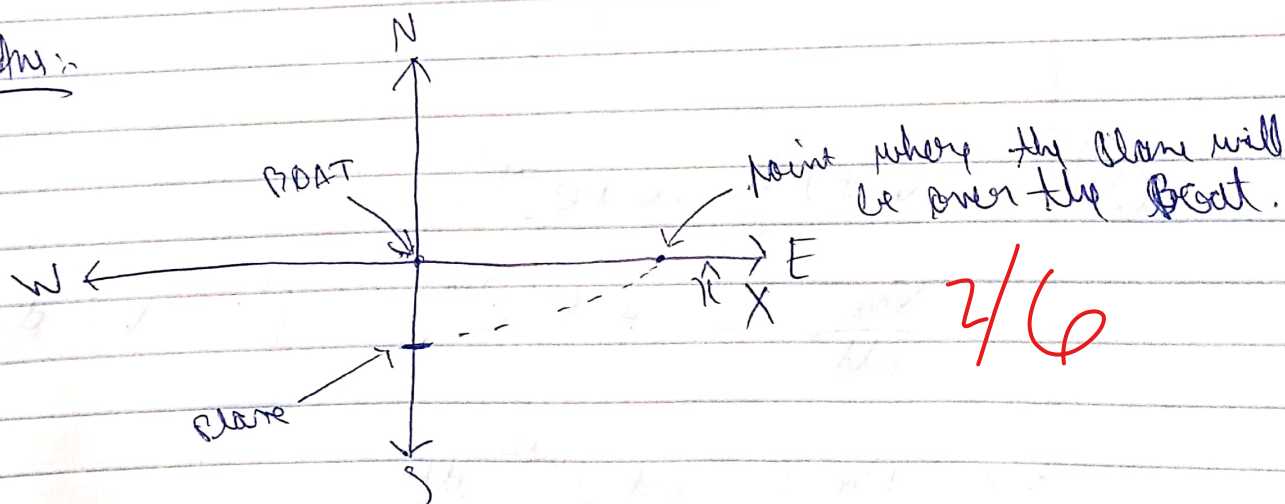 Ans:-
N
BOAT
point where the Plane will
be over the Boat.
W
E
x̂
X
2/6
Plane
S